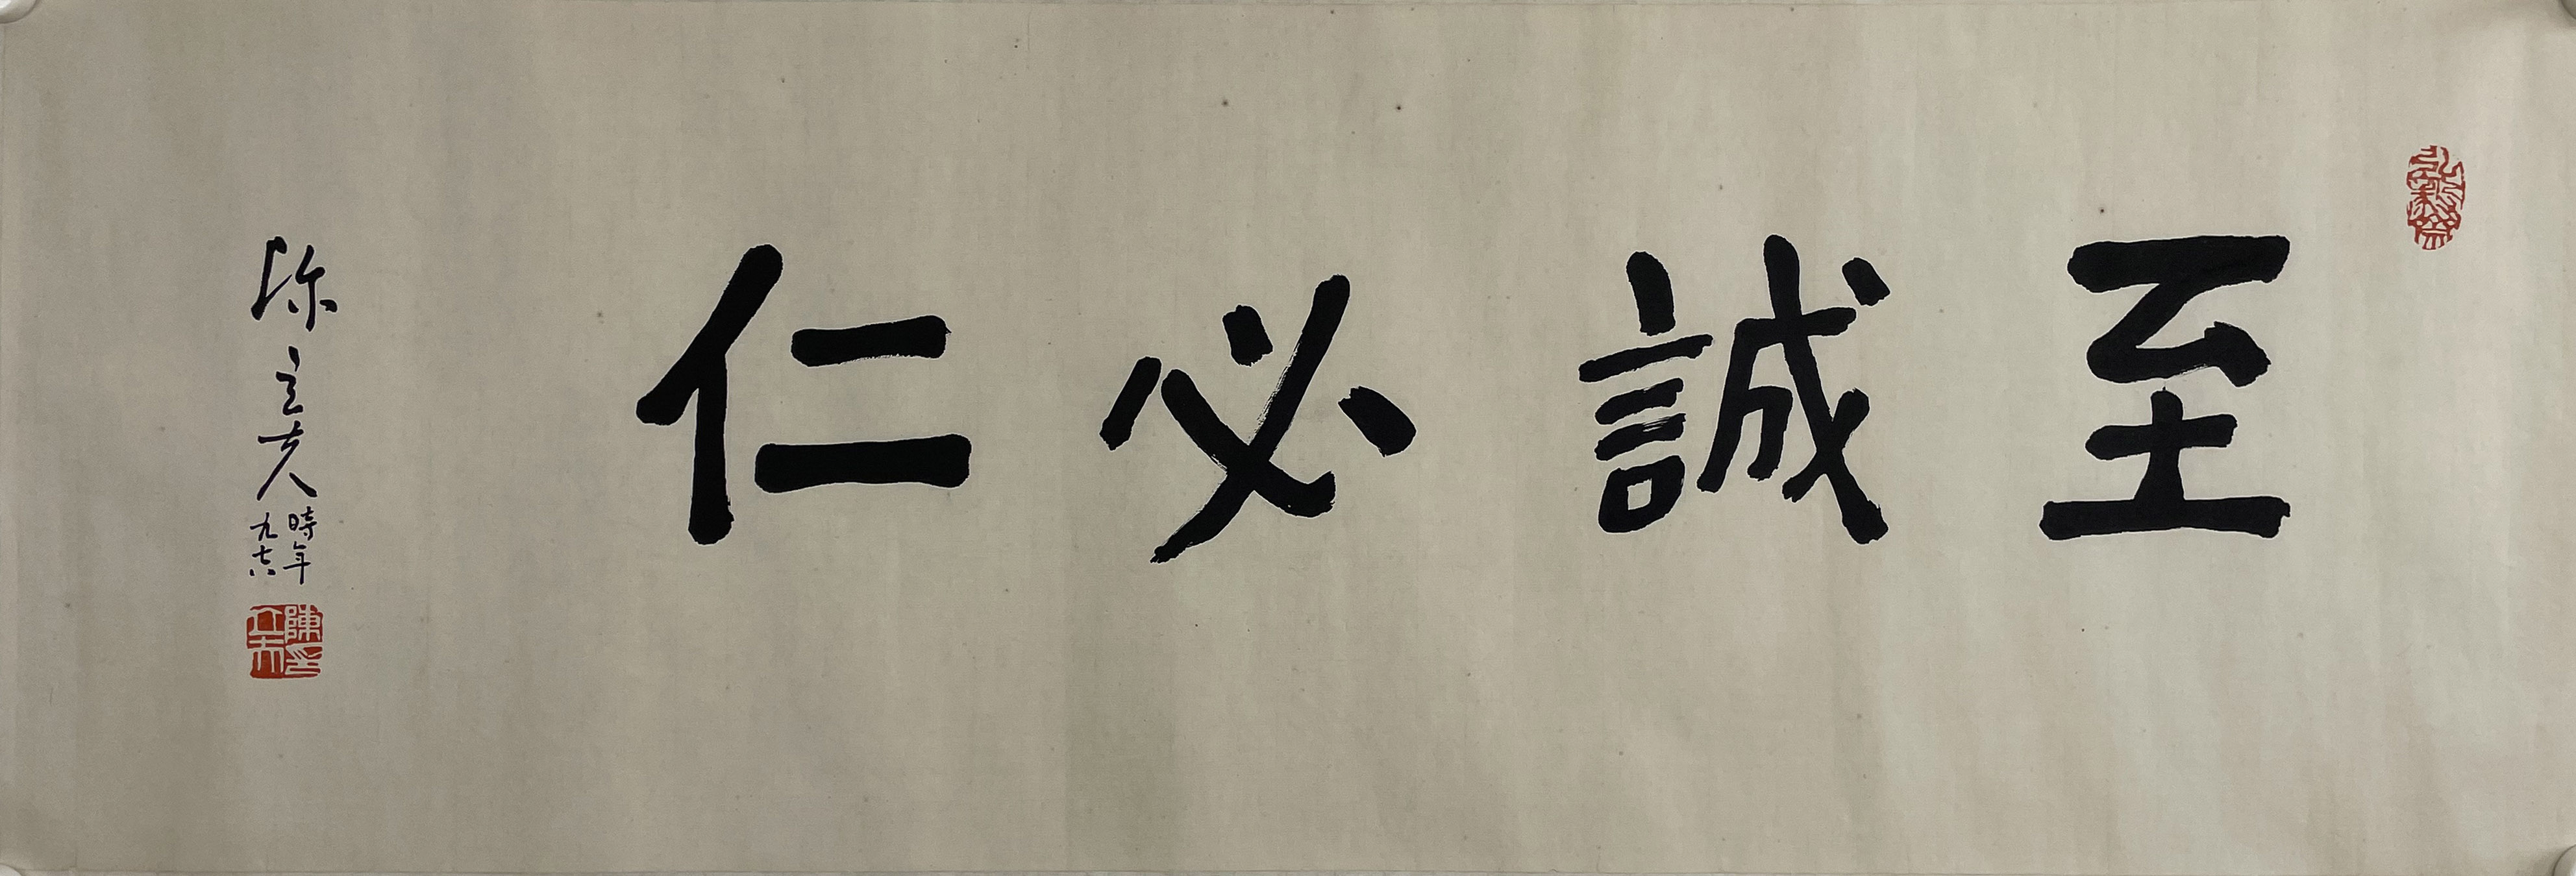 至誠必仁
陳立夫
時年
九十六
陳立夫印